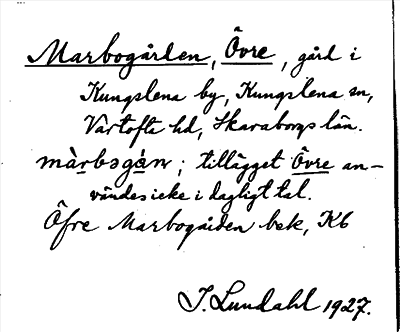 Marbogården, Övre, gård i
Kungslena by, Kungslena sn,
Vartofta hd, Skaraborgs län.
màrbɔgán; tillägget Övre an-
vändes icke i dagligt tal.
Öfre Marbogården bek, Kb
J. Lundahl 1927.